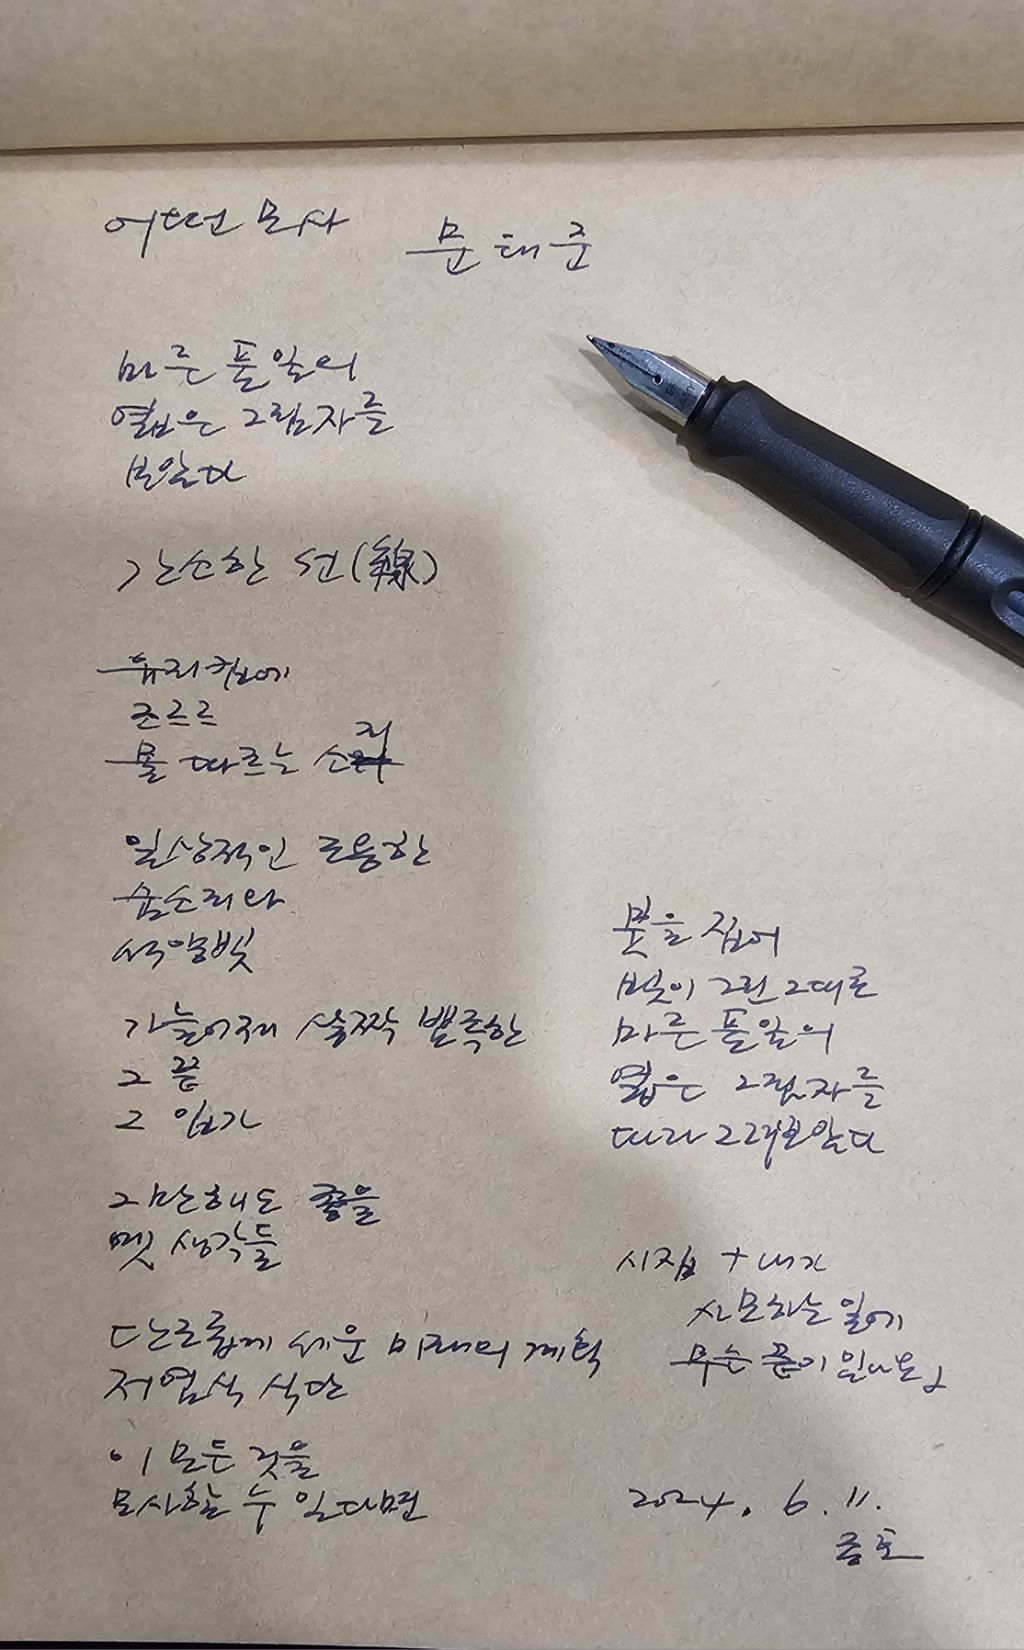 어떤 모사
문태준
마른 풀잎의
엷은 그림자를
보았다
간소한 선(線)
유리컵에
조르르
물 따르는 소리
일상적인 조용한
숨소리와
석양빛
가늘어져 살짝 뾰족한
그 끝
그 입가
그만해도 좋을
옛 생각들
단조롭게 세운 미래의 계획
저염식 식단
이 모든 것을
모사할 수 있다면
붓을 집어
빛이 그린 그대로
마른 풀잎의
엷은 그림자를
따라 그려보았다
시집 내가
사모하는 일에
무슨 끝이 있나요
2024. 6. 11.